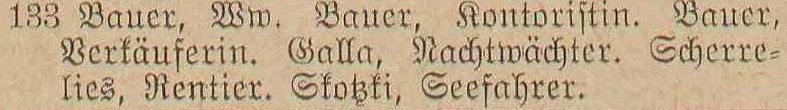 133 Bauer, Ww. Bauer, Kontoristin. Bauer,
Verkäuferin. Galla, Nachtwächter. Scherre-
lies, Rentier. Skotzki, Seefahrer.